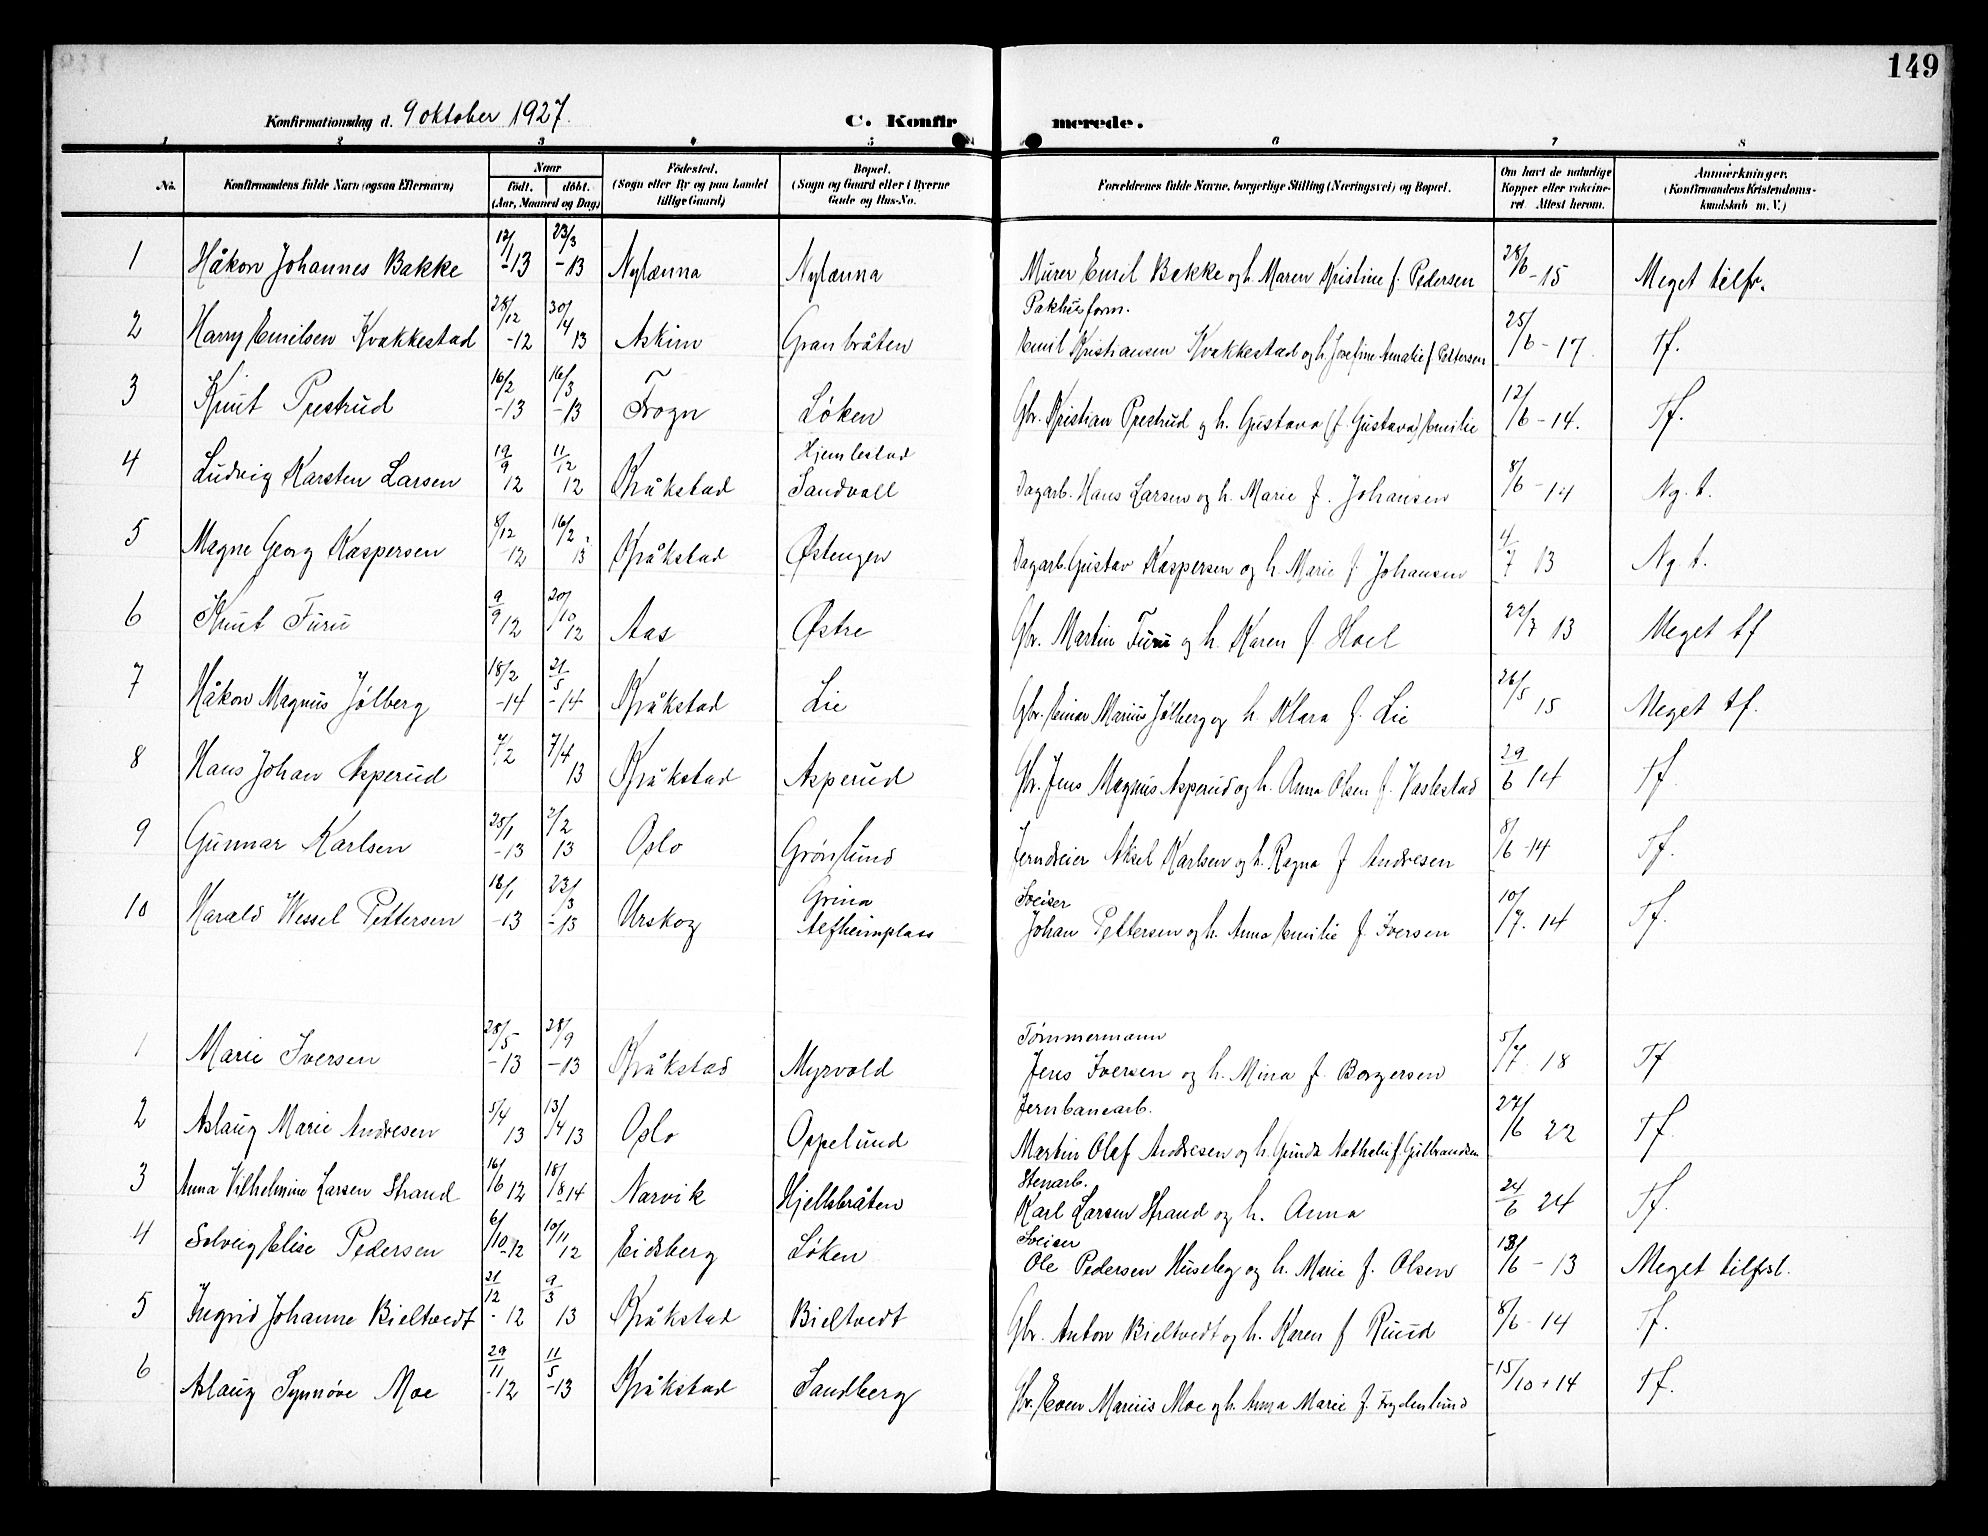 149
Konfirmationsdag d. 9 oktober 1927.
C. Konfirmerede.
1 2 3 4 5 6 7 8
No. | Konfirmandens fulde Navn (ogsaa Efternavn) | Naar født. døbt. (Aar, Maaned og Dag) | Fødested. (Sogn eller By og paa Landet tillige Gaard) | Bopæl. (Sogn og Gaard eller i Byerne Gade og Hus-No. | Forældrenes fulde Navne, borgerlige Stilling (Næringsvei) og Bopæl. | Om havt de naturlige Kopper eller vakcineret. Attest herom. | Anmærkninger. (Konfirmandens Kristendomskundskab m. V.)
1 Håkon Johannes Bakke 12/1 -13 23/3 -13 Nylænna Nylænna Murer Emil Bakke og h. Maren Kristine f. Pedersen 28/6 -15 Meget tilfr.
2 Harry Emilsen Kvakkestad 28/12 -12 30/4 13 Askim Granbråten Pakhusform. Emil Kristiansen Kvakkestad og h. Josefine Amalie f. Pettersen 25/6 - 17. Tf.
3 Knut Prestrud 16/2 -13 16/3 -13 Frogn Løken Gbr. Kristian Prestrud og h. Gustava (f. Gustava) Emilie 12/6 - 14. Tf.
4 Ludvig Karsten Larsen 19/9 12 11/12 12 Kråkstad Hjemlestad Sandvoll Dagarb. Hans Larsen og h. Marie f. Johansen 8/6 - 14 Ng. t.
5 Magne Georg Kaspersen 8/12 -12 16/2 13 Kråkstad Østengen Dagarb. Gustav Kaspersen og h. Marie f. Johansen 4/7 13 Ng. t.
6 Knut Furu 9/9 12 20/10 12 Aas Østre Gbr. Martin Furu og h. Karen f Hoel 22/7 13 Meget tf
7 Håkon Magnus Jølberg 18/2 -14 21/5 -14 Kråkstad Lie Gbr. Einar Marius Jølberg og h. Klara f. Lie 26/5 15 Meget tf.
8 Hans Johan Asperud 7/2 7/4 13 Kråkstad Asperud Gbr. Jens Magnus Asperud og h. Anna Olsen f. Vaslestad 29/6 14 Tf
9 Gunnar Karlsen 25/1 -13 2/2 13 Oslo Grønlund Jerndreier Aksel Karlsen og h. Ragna f Andresen 8/6 -14 Tf.
10 Harald Wessel Pettersen 18/1 -13 23/3 -13 Urskog Grina Alfheimplass Sveiser Johan Pettersen og h. Anna Emilie f. Iversen 10/7. 14 Tf.
1 Marie Iversen 28/5 -13 28/9 -13 Kråkstad Myrvold Tømmermann Jens Iversen og h. Mina f. Borgersen 5/7 18 Tf
2 Aslaug Marie Andresen 5/4 13 13/4 13 Oslo Oppelund Jernbanearb. Martin Olaf Andresen og h. Gunda Nathalie f. Gulbrandsen 27/6 22 Tf.
3 Anna Vilhelmine Larsen Strand 16/6 12 18/8 14 Narvik Hjellsbråten Stenarb. Karl Larsen Strand og h. Anna 24/6 24 Tf.
4 Solveig Elise Pedersen 6/10 -12 10/11 12 Eidsberg Løken Sveiser Ole Pedersen Huseby og h. Marie f. Olsen 18/6 - 13 Meget tilfrst.
5 Ingrid Johanne Bieltvedt 21/12 - 12 9/3 13 Kråkstad Bieltvedt Gbr. Anton Bieltvedt og h. Karen f Ruud 8/6 - 14 Tf.
6 Aslaug Synnøve Moe 29/11 -12 11/5 -13 Kråkstad Sandberg Gbr. Even Marius Moe og h. Anna Marie f. Frydenlund 15/10 + 14 Tf.